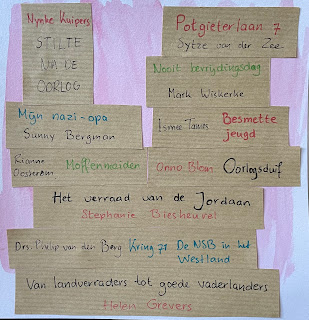 Nynke Kuipers
STILTE
NA DE
OORLOG
Potgieterlaan 7
Sytze van der Zee
Nooit bevrijdingsdag
Mark Wiskerke
Mijn nazi-opa
Sunny Bergman
Ismee Tames Besmette
jeugd
Rianne
Oosterom Moffenmeiden
Onno Blom Oorlogsduif
Het verraad van de Jordaan
Stephanie Biesheuvel
Drs. Philip van den Berg Kring 71 De NSB in het
Westland
Van landverraders tot goede vaderlanders
Helen Grevers